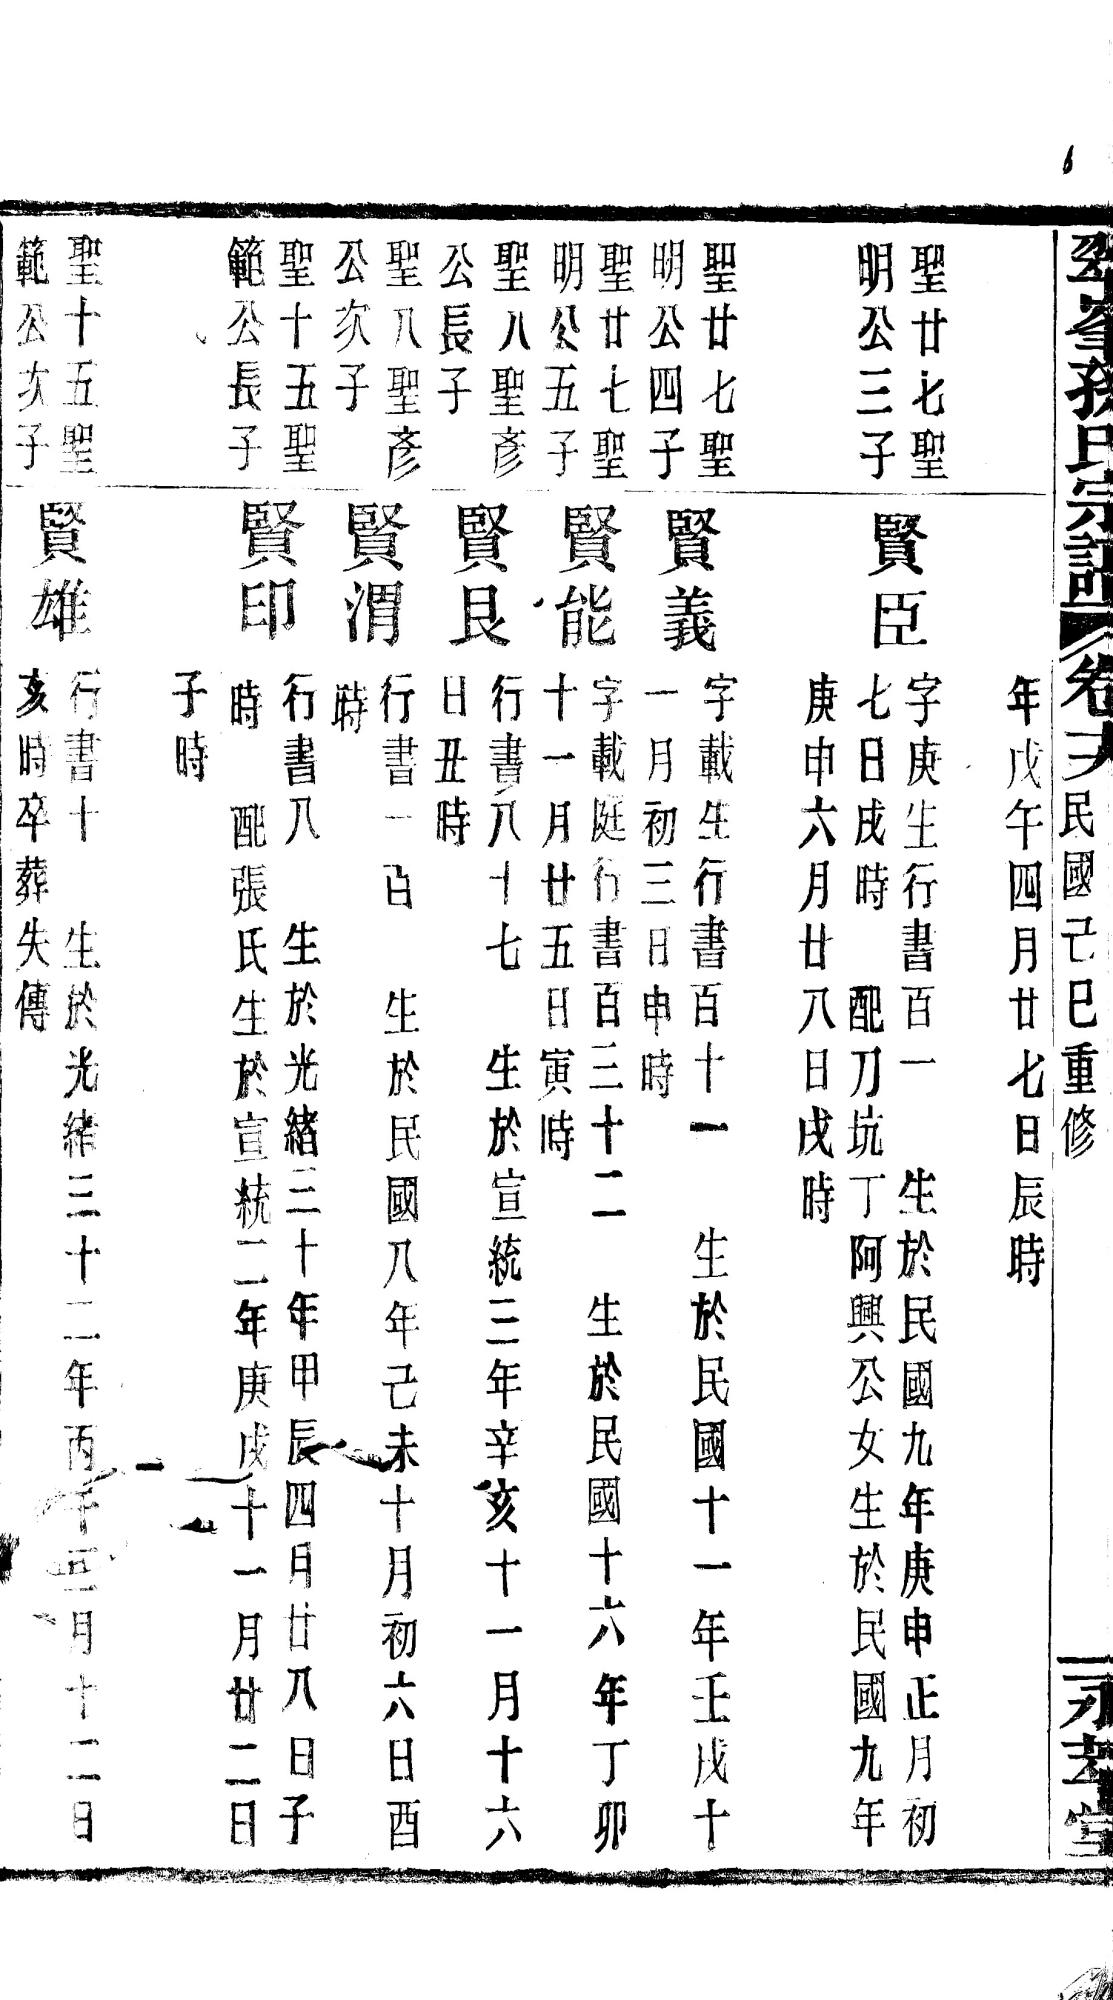 翠峯孫氏宗譜 卷 民國己巳重修 永 堂
年戊午四月廿七日辰時
聖廿七聖
明公三子
賢臣
字庚生行書百一 生於民國九年庚申正月初
七日戌時 配刀坑丁阿興公女生於民國九年
庚申六月廿八日戌時
聖廿七聖
明公四子
賢義
字載生行書百十一 生於民國十一年壬戌十
一月初三日申時
聖廿七聖
明公五子
賢能
字載庭行書百三十二 生於民國十六年丁卯
十一月廿五日寅時
聖八聖彥
公長子
賢艮
行書八十七 生於宣統三年辛亥十一月十六
日丑時
聖八聖彥
公次子
賢渭
行書一百 生於民國八年己未十月初六日酉
時
聖十五聖
範公長子
賢印
行書八 生於光緒三十年甲辰四月廿八日子
時 配張氏生於宣統二年庚戌十一月廿二日
子時
聖十五聖
範公次子
賢雄
行書十 生於光緒三十二年丙午 月十二日
亥時卒葬失傳